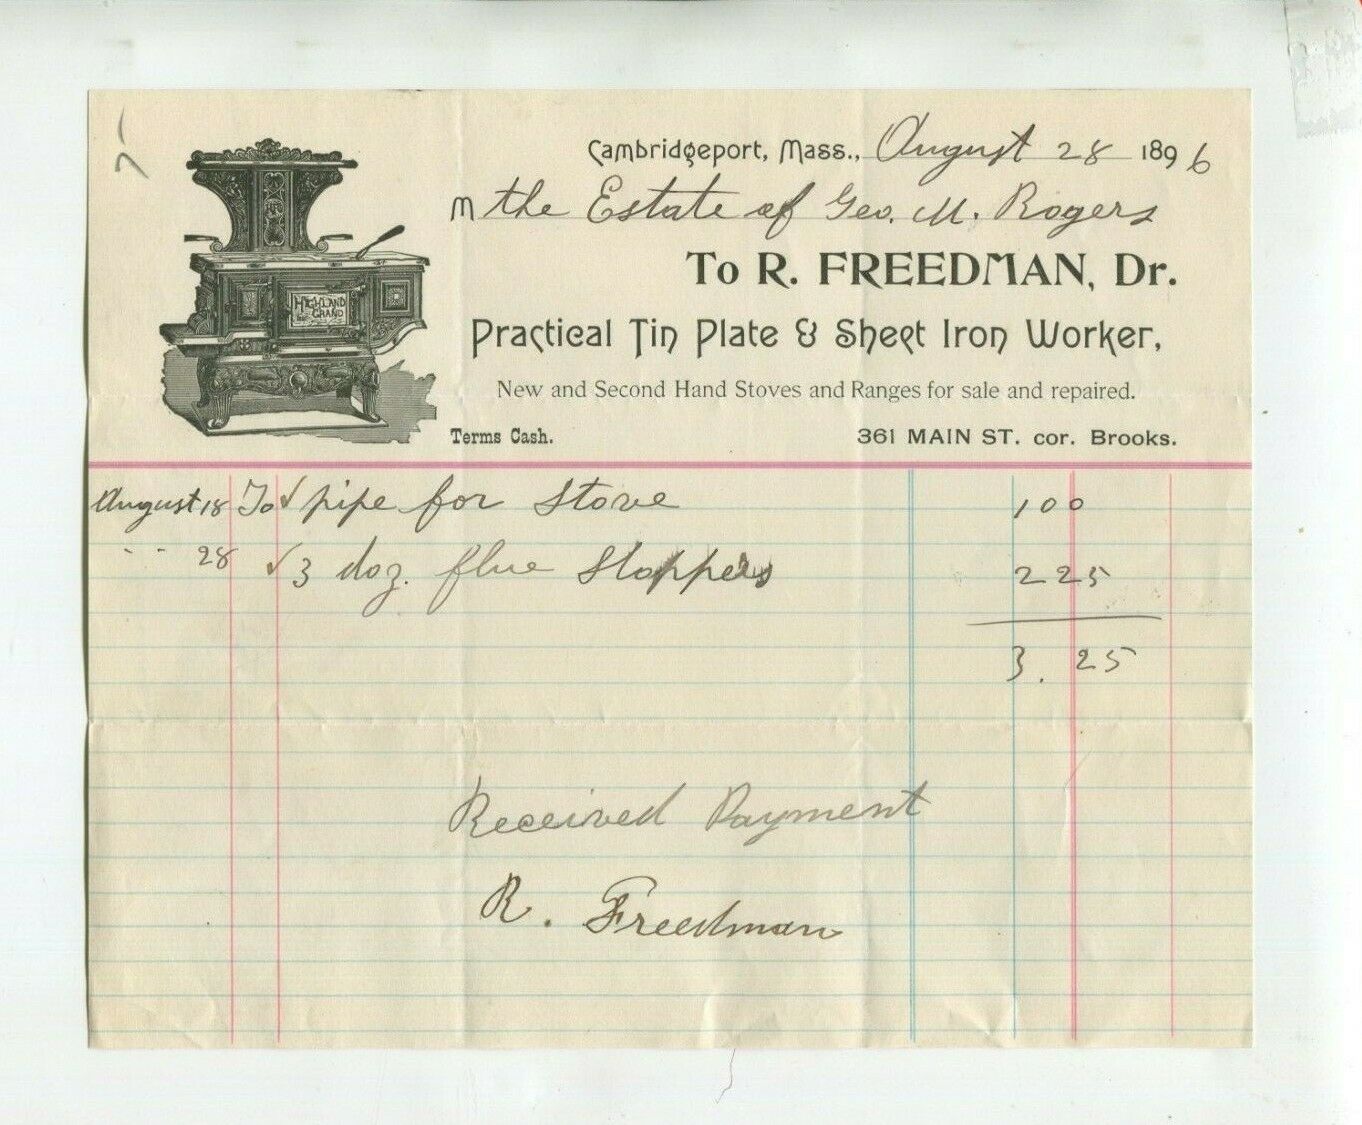 7-
Cambridgeport, Mass., August 28 1896
M the Estate of Geo. M. Rogers
To R. FREEDMAN, Dr.
Practical Tin Plate & Sheet Iron Worker,
New and Second Hand Stoves and Ranges for sale and repaired.
Terms Cash. 361 MAIN ST. cor. Brooks.
HIGHLAND GRAND
August 18 To ✓ pipe for Stove 1 00
" " 28 ✓ 3 doz. flue Stoppers 2 25
3. 25
Received Payment
R. Freedman